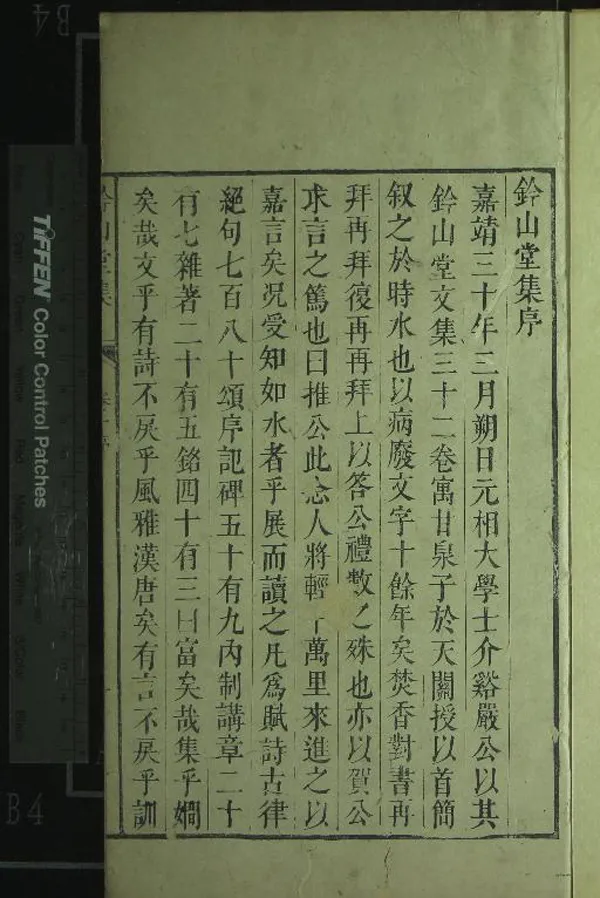 鈐山堂集序
嘉靖三十年三月朔日元相大學士介谿嚴公以其
鈐山堂文集三十二卷寓甘泉子於天關授以首簡
叙之於時水也以病廢文字十餘年矣焚香對書再
拜再拜復再再拜上以答公禮數之殊也亦以賀公
求言之篤也曰推公此念人將輕千萬里來進之以
嘉言矣况受知如水者乎展而讀之凡爲賦詩古律
絕句七百八十頌序記碑五十有九內制講章二十
有七雜著二十有五銘四十有三曰富矣哉集乎嫺
矣哉文乎有詩不戾乎風雅漢唐矣有言不戾乎訓
鈐山堂集
TIFFEN Color Control Patches
B4
B4